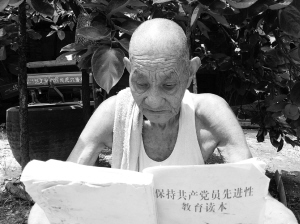 保持共产党员先进性
教育读本